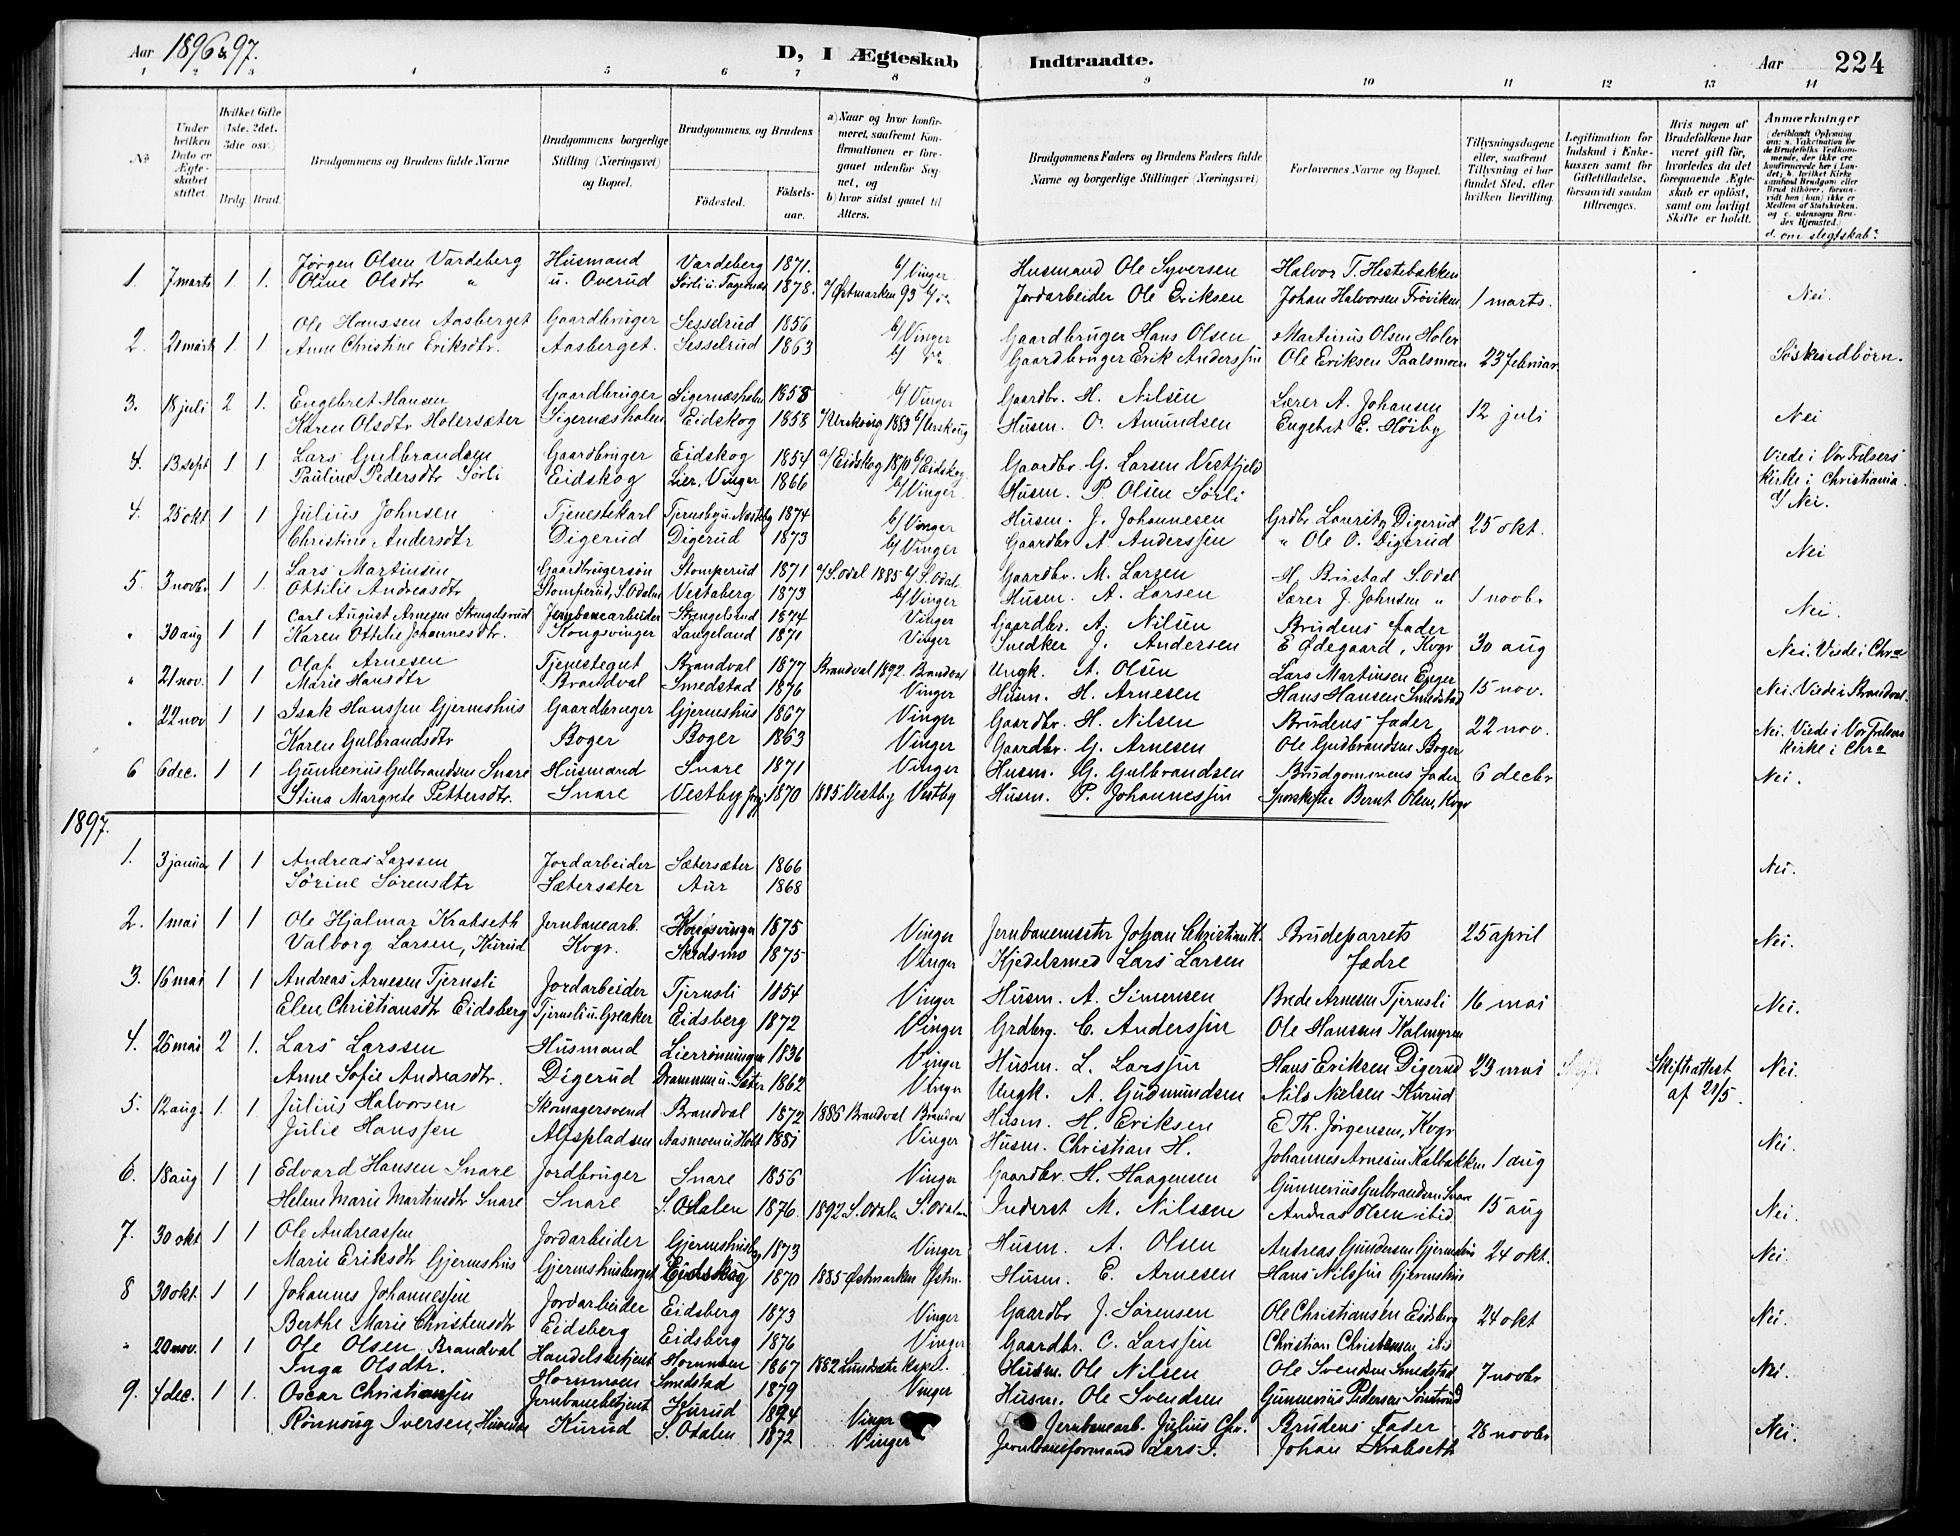 Aar 1896 & 97. D, I Ægteskab Indtraadte. Aar 224
1 2 3 4 5 6 7 8 9 10 11 12 13 14
No
Under hvilken Dato er Ægteskabet stiftet.
Hvilket Gifte (1ste, 2det, 3die osv.)
Brdg. Brud.
Brudgommens og Brudens fulde Navne
Brudgommens borgerlige Stilling (Næringsvei) og Bopæl.
Brudgommens og Brudens
Fødested.
Fødselsaar.
a) Naar og hvor konfirmeret, saafremt Konfirmationen er foregaaet udenfor Sognet, og
b) hvor sidst gaaet til Alters.
Brudgommens Faders og Brudens Faders fulde Navne og borgerlige Stillinger (Næringsvei)
Forlovernes Navne og Bopæl.
Tillysningsdagene eller, saafremt Tillysning ei har fundet Sted, efter hvilken Bevilling.
Legitimation for Indskud i Enkekassen samt for Giftetilladelse, forsaavidt saadan tiltrænges.
Hvis nogen af Brudefolkene har været gift før, hvorledes da det foregaaende Ægteskab er opløst, samt om lovligt Skifte er holdt.
Anmærkninger
d. om slegtskab?
1. 7 marts 1 1. Jørgen Olsen Vardeberg Husmand Vardeberg 1871. b/ Vinger Husmand Ole Syversen Halvor T. Hestebakken
Oline Olsdtr " u. Overud Sørli u. Tagernæs 1878. a/ Østmarken 93 b/ do Jordarbeider Ole Eriksen Johan Halvorsen Frøviken 1 marts. Nei.
2. 21 marts 1 1. Ole Hanssen Aasberget Gaardbruger Sesselrud 1856 b/ Vinger Gaardbruger Hans Olsen Martinius Olsen Holer
Anne Christine Eriksdtr. Aasberget. Sesselrud 1863 b/ do Gaardbruger Erik Anderssen Ole Eriksen Paalsmoen 23 februar Søskendbørn.
3. 18 juli 2 1. Engebret Hansen Gaardbruger Sigernæsholen 1858 b/ Vinger Gaardbr. H. Nilsen Lærer A. Johansen 12 juli Nei
Karen Olsdtr Holersæter Sigernæsholen Eidskog 1858 1883 b/ Urskoug Husm. O. Amundsen Engebret E. Høiby
4. 13 sept 1 1. Lars Gulbrandsen Gaardbruger Eidskog 1854 a/ Eidskog 1870 b/ Eidskog Gaardbr G. Larsen Vestfjeld Viede i Vor Frelsers
Pauline Pedersdtr Sørli Eidskog Lier, Vinger 1866 b/ Vinger. Husm. P. Olsen Sørli kirke i Christiania.
d/ Nei.
4. 25 okt 1 1 Julius Johnsen Tjenestekarl Tjernsby u. Næsteby 1874 b/ Vinger Husm. J. Johannesen Grdbr Lauritz Digerud 25 okt.
Christine Andersdtr Digerud Digerud 1873 b/ Vinger Gaardbr A Anderssen " Ole O. Digerud Nei
5. 3 novbr 1 1 Lars Martinsen Gaardbrugersøn Stomperud 1871 a/ S. Odal 1885 b/ S. Odal. Gaardbr. M. Larsen H. Bustad S. Odal
Ottilie Andreasdtr Stomperud, S. Odalen Vestaberg 1873 b/ Vinger Husm. A. Larsen Lærer J. Johnsen " 1 novbr Nei.
" 30 aug 1 1 Carl August Arnesen Strengelsrud Jernbanearbeider Strengelsrud 1874 Vinger Gaardbr. A. Nilsen Brudens fader
Karen Ottilie Johannesdtr. Kongsvinger Langeland 1871 Vinger Snedker J. Andersen E Ødegaard, Kvgr 30 aug Nei. Viede i Chra
" 21 nov. 1 1 Olaf Arnesen Tjenestegut Brandval 1877 Brandval 1892. Brandval Ungk. A. Olsen Lars Martinsen Enger
Marie Hansdtr Brandval Smedstad 1876 Vinger Husm. H. Arnesen Hans Hansen Smedstad 15 nov. Nei. Viede i Brandval.
" 22 nov 1 1 Isak Hanssen Gjermshus Gaardbruger Gjermshus 1867 Vinger Gaardbr. H. Nilsen Brudens fader 22 nov. Nei. Viede i Vor Frelsers
Karen Gulbrandsdtr Boger Boger 1863 Vinger Gaardbr. G. Arnesen Ole Gudbrandsen Boger kirke i Chra
6 6 dec. 1 1 Gunnerius Gulbrandsen Snare Husmand Snare 1871 Vinger Husm. G. Gulbrandsen Brudgommens fader 6 decbr Nei.
Stina Margrete Pettersdtr. Snare Vestby 1870 1885 Vestby Vestby Husm. P. Johannessen Bernt Olsen, Kvgr
1897.
1. 3 januar 1 1 Andreas Larssen Jordarbeider Sætersæter 1866
Sørine Sørensdtr Sætersæter Aur 1868 Nei.
2. 1 mai 1 1 Ole Hjalmar Krabseth Jernbanearb. Kongsvinger 1875 Vinger Jernbanemester Johan Christian K. Brudeparrets 25 april Nei.
Valborg Larsen, Kurud Kvgr. Skedsmo 1875 Vinger Kjedelsmed Lars Larsen fædre
3. 16 mai 1 1 Andreas Arnesen Tjernsli Jordarbeider Tjernsli 1854 Vinger Husm. A. Simensen Brede Arnesen Tjernsli 16 mai Nei.
Elen Christiansdtr Eidsberg Tjernsli u. Greaker Eidsberg 1872 Vinger Grdbrg. C. Anderssen Ole Hansen Kalmyren
4. 26 mai 2 1. Lars Larssen Husmand Lierrønningen 1836 Vinger Husm. L. Larssen Hans Eriksen Digerud 23 mai Skifteattest Nei.
Anne Sofie Andreasdtr. Digerud Drammen u. Sæter 1862 Vinger Ungk. A. Gudmundsen Nils Nielsen Kurud af 21/5.
5. 12 aug. 1. 1. Julius Halvorsen Skomagersvend Brandval 1872 1886 Brandval Brandval Husm. H. Eriksen E. Th. Jørgensen, Kvgr
Julie Hanssen Alfspladsen Aasmoen u. Holt 1881 Vinger Husm. Christian H. Johannes Arnesen Kalbakken 1 aug Nei.
6. 18 aug 1 1 Edvard Hansen Snare Jordbruger Snare 1856 Vinger Gaardbr. H. Haagensen Gunnerius Gulbrandsen Snare
Helene Marie Martinsdtr Snare Snare S. Odalen 1876. 1892 S. Odalen S. Odalen Inderst M. Nilsen Andreas Olsen ibid 15 aug Nei.
7. 30 okt 1 1 Ole Andreassen Jordarbeider Gjermshusbg 1873 Vinger Husm. A. Olsen Andreas Gundersen Gjermshus 24 okt. Nei.
Marie Eriksdtr Gjermshus Gjermshusberget Eidskog 1870 1885 Østmarken Østm. Husm. E. Arnesen Hans Nilssen Gjermshus
8 30 okt. 1 1 Johannes Johannessen Jordarbeider Eidsberg 1873 Vinger Gaardbr J. Sørensen Ole Christiansen Eidsberg 24 okt Nei.
Berthe Marie Christensdtr Eidsberg Eidsberg 1876 Vinger Gaardbr. C. Larssen Christian Christensen ibid
" 20 nov. 1 1 Ole Olsen, Brandval Handelsbetjent Hornmoen 1867 1882 Lundersætr. Kapel. Husm. Ole Nilsen Ole Svendsen Smedstad 7 novbr Nei.
Inga Olsdtr. Hornmoen Smedstad 1879 Vinger Husm. Ole Svendsen Gunnerius Pedersen
9. 4 dec. 1 1. Oscar Christiansen Jernbanebetjent Kurud 1874 Vinger Jernbanearb. Julius Chr. Brudens Fader 28 novbr Nei.
Rønnoug Iversen, Kurud S. Odalen 1872 Vinger Jernbaneformand Lars I. Johan Krabseth